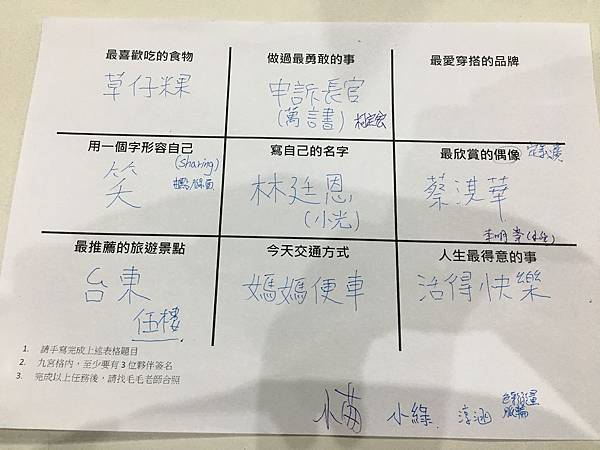 最喜歡吃的食物
做過最勇敢的事
最愛穿搭的品牌
草仔粿
申訴長官
(萬言書)
用一個字形容自己
寫自己的名字
最欣賞的偶像
笑
(sharing)
林廷恩
(小光)
蔡淇華
最推薦的旅遊景點
今天交通方式
人生最得意的事
台東
伍樓
媽媽便車
活得快樂
1. 請手寫完成上述表格題目
2. 九宮格內，至少要有3位夥伴簽名
3. 完成以上任務後，請找毛毛老師合照
小綠
淳涵